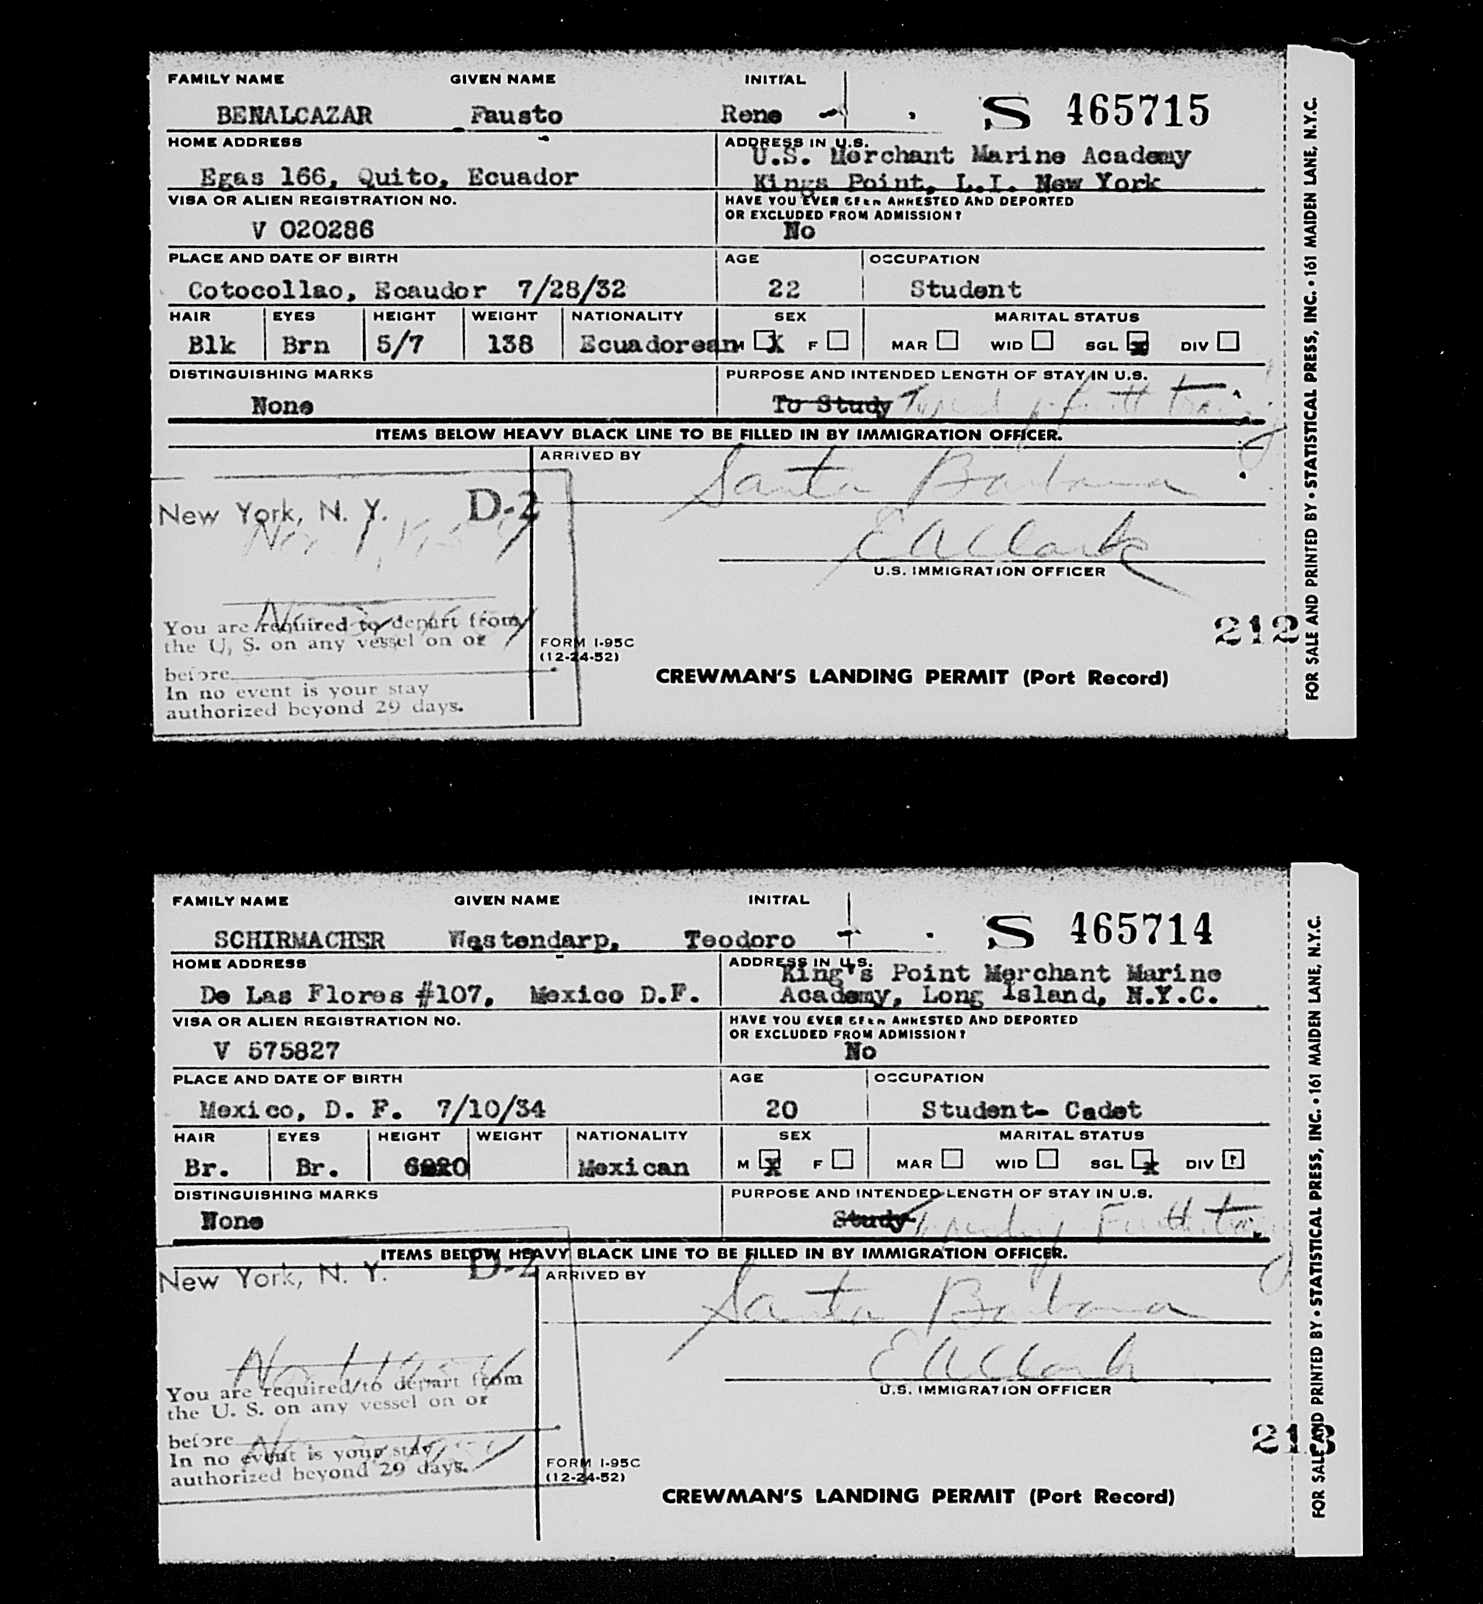 FAMILY NAME GIVEN NAME INITIAL
BENALCAZAR Fausto Rene S 465715
HOME ADDRESS ADDRESS IN U.S.
Egas 166, Quito, Ecuador U.S. Merchant Marine Academy
Kings Point, L.I. New York
VISA OR ALIEN REGISTRATION NO. HAVE YOU EVER BEEN ARRESTED AND DEPORTED
OR EXCLUDED FROM ADMISSION?
V 020286 No
PLACE AND DATE OF BIRTH AGE OCCUPATION
Cotocollao, Ecaudor 7/28/32 22 Student
HAIR EYES HEIGHT WEIGHT NATIONALITY SEX MARITAL STATUS
Blk Brn 5/7 138 Ecuadorean M X F MAR WID SGL X DIV
DISTINGUISHING MARKS PURPOSE AND INTENDED LENGTH OF STAY IN U.S.
None To Study
ITEMS BELOW HEAVY BLACK LINE TO BE FILLED IN BY IMMIGRATION OFFICER.
ARRIVED BY Santa Barbara
New York, N. Y. D-2
E A Clark
U.S. IMMIGRATION OFFICER
You are required to depart from
the U. S. on any vessel on or
before
In no event is your stay
authorized beyond 29 days.
FORM I-95C
(12-24-52)
212
CREWMAN'S LANDING PERMIT (Port Record)
FOR SALE AND PRINTED BY • STATISTICAL PRESS, INC. • 161 MAIDEN LANE, N.Y.C.
FAMILY NAME GIVEN NAME INITIAL
SCHIRMACHER Westendarp, Teodoro S 465714
HOME ADDRESS ADDRESS IN U.S.
De Las Flores #107, Mexico D.F. King's Point Merchant Marine
Academy, Long Island, N.Y.C.
VISA OR ALIEN REGISTRATION NO. HAVE YOU EVER BEEN ARRESTED AND DEPORTED
OR EXCLUDED FROM ADMISSION?
V 575827 No
PLACE AND DATE OF BIRTH AGE OCCUPATION
Mexico, D. F. 7/10/34 20 Student- Cadet
HAIR EYES HEIGHT WEIGHT NATIONALITY SEX MARITAL STATUS
Br. Br. Mexican M X F MAR WID SGL X DIV
DISTINGUISHING MARKS PURPOSE AND INTENDED LENGTH OF STAY IN U.S.
None Study
ITEMS BELOW HEAVY BLACK LINE TO BE FILLED IN BY IMMIGRATION OFFICER.
New York, N. Y. D-2
ARRIVED BY Santa Barbara
E A Clark
U.S. IMMIGRATION OFFICER
You are required to depart from
the U. S. on any vessel on or
before
In no event is your stay
authorized beyond 29 days.
FORM I-95C
(12-24-52)
CREWMAN'S LANDING PERMIT (Port Record)
FOR SALE AND PRINTED BY • STATISTICAL PRESS, INC. • 161 MAIDEN LANE, N.Y.C.